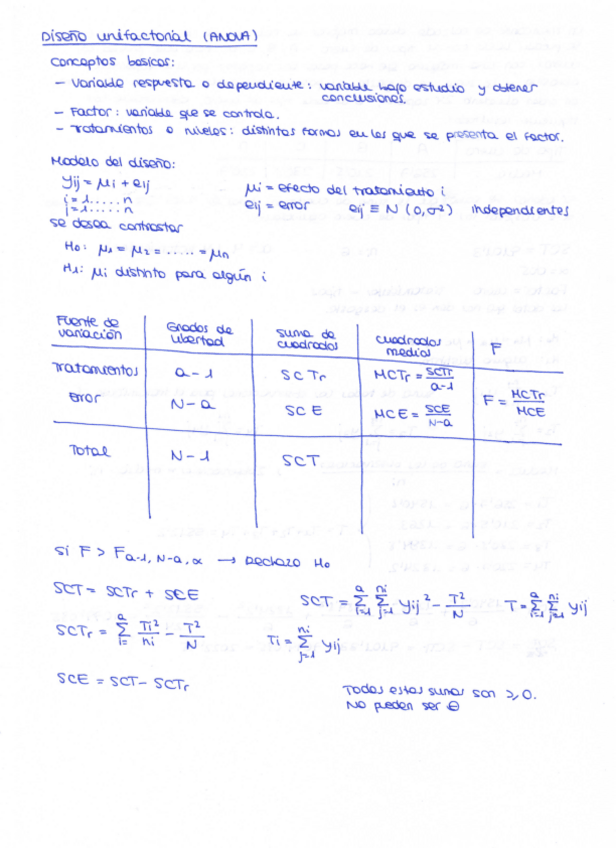 Diseño unifactorial (ANOVA)
Conceptos basicos:
- Variable respuesta o dependiente: variable bajo estudio y obtener
conclusiones.
- Factor: variable que se controla.
- Tratamientos o niveles: distintas formas en las que se presenta el factor.
Modelo del diseño:
yij = μi + eij
μi = efecto del tratamiento i
i = 1.....n
j = 1.....n
eij = error eij ≡ N (0,σ²) independientes
se desea contrastar
H₀: μ₁ = μ₂ = ..... = μn
H₁: μi distinto para algún i
Fuente de variación | Grados de libertad | Suma de cuadrados | Cuadrados medios | F
Tratamientos | a-1 | SCTr | MCTr = SCTr/a-1
Error | N-a | SCE | MCE = SCE/N-a | F = MCTr/MCE
Total | N-1 | SCT
Si F > F a-1, N-a, α → Rechazo H₀
SCT = SCTr + SCE
SCT = Σ(i=1, a) Σ(j=1, ni) yij² - T²/N T = Σ(i=1, a) Σ(j=1, ni) yij
SCTr = Σ(i=, a) Ti²/ni - T²/N Ti = Σ(j=1, ni) yij
SCE = SCT - SCTr
Todas estas sumas son ≥ 0.
No pueden ser ⊖